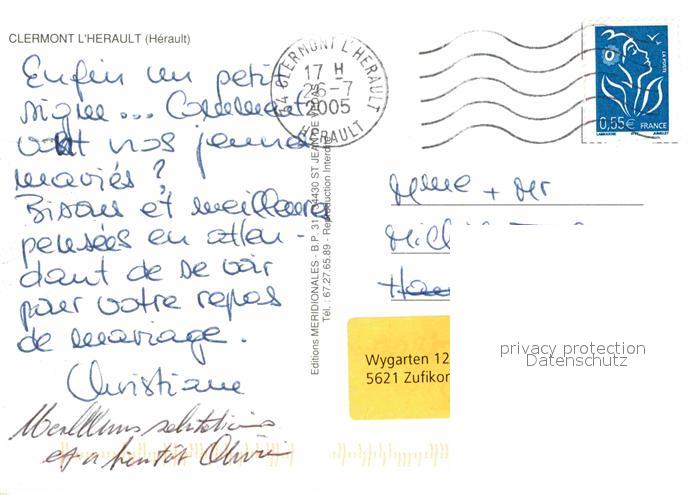 CLERMONT L'HERAULT (Hérault)
Enfin un petit
signe... Comment
vont nos jeunes
mariés ?
Bisous et meilleures
pensées en atten-
dant de se voir
pour votre repas
de mariage.
Christiane
Meilleures salutations
et a bientôt Olivier
34 CLERMONT L'HERAULT
17 H
26-7
2005
HERAULT
LA POSTE
0,55€ FRANCE
Editions MERIDIONALES - B.P. 34430 ST JEAN DE VEDAS
Tél. : 67.27.65.89 - Reproduction Interdite
Mme + Mr
Wygarten 12
5621 Zufikon
privacy protection
Datenschutz